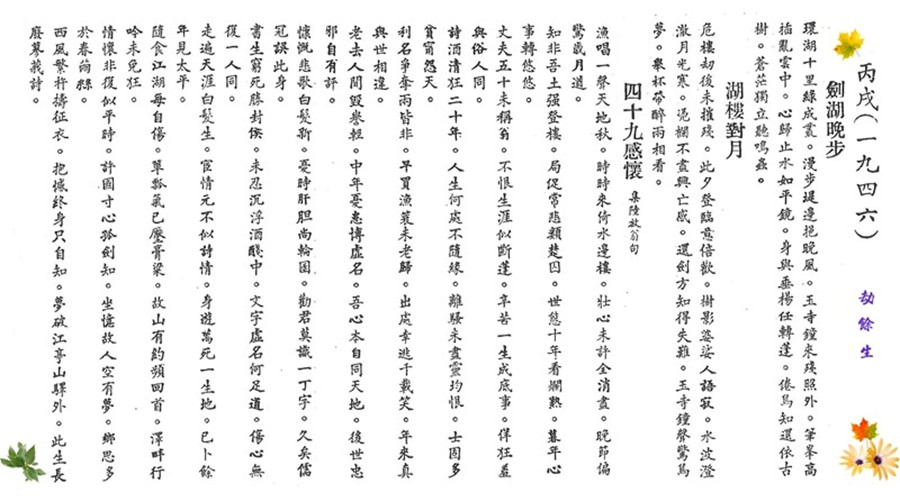 丙戌(一九四六)
劫餘生
劍湖晚步
環湖十里綠成叢。漫步堤邊挹晚風。玉寺鐘來殘照外。筆峯高
插亂雲中。心歸止水如平鏡。身與垂楊任轉蓬。倦鳥知還依古
樹。蒼茫獨立聽鳴蟲。
湖樓對月
危樓劫後未摧殘。此夕登臨意倍歡。樹影婆娑人語寂。水波澄
澈月光寒。憑欄不盡興亡感。還劍方知得失難。玉寺鐘聲驚鳥
夢。舉杯帶醉兩相看。
四十九感懷 集陸放翁句
漁唱一聲天地秋。時時來倚水邊樓。壯心未許全消盡。晚節偏
驚歲月遒。
知非吾土强登樓。局促常悲類楚囚。世態十年看爛熟。暮年心
事轉悠悠。
丈夫五十未稱翁。不恨生涯似斷蓬。辛苦一生成底事。佯狂羞
與俗人同。
詩酒清狂二十年。人生何處不隨緣。離騷未盡靈均恨。士固多
貧甯怨天。
利名爭奪兩皆非。早買漁簑未老歸。出處幸逃千載笑。年來真
與世相違。
老去人間毀譽輕。中年憂患博虛名。吾心本自同天地。後世忠
邪自有評。
慷慨悲歌白髮新。憂時肝胆尚輪囷。勸君莫識一丁字。久矣儒
冠誤此身。
書生窮死勝封侯。未忍沉浮酒醆中。文字虛名何足道。傷心無
復一人同。
走遍天涯白髮生。宦情元不似詩情。身遊萬死一生地。已卜餘
年見太平。
隨食江湖每自傷。簞瓢氣已壓膏粱。故山有約頻回首。澤畔行
吟未免狂。
情懷非復似平時。許國寸心孤劍知。坐憶故人空有夢。鄉思多
於春繭絲。
西風繁杵擣征衣。抱憾終身只自知。夢破江亭山驛外。此生長
廢蓼莪詩。